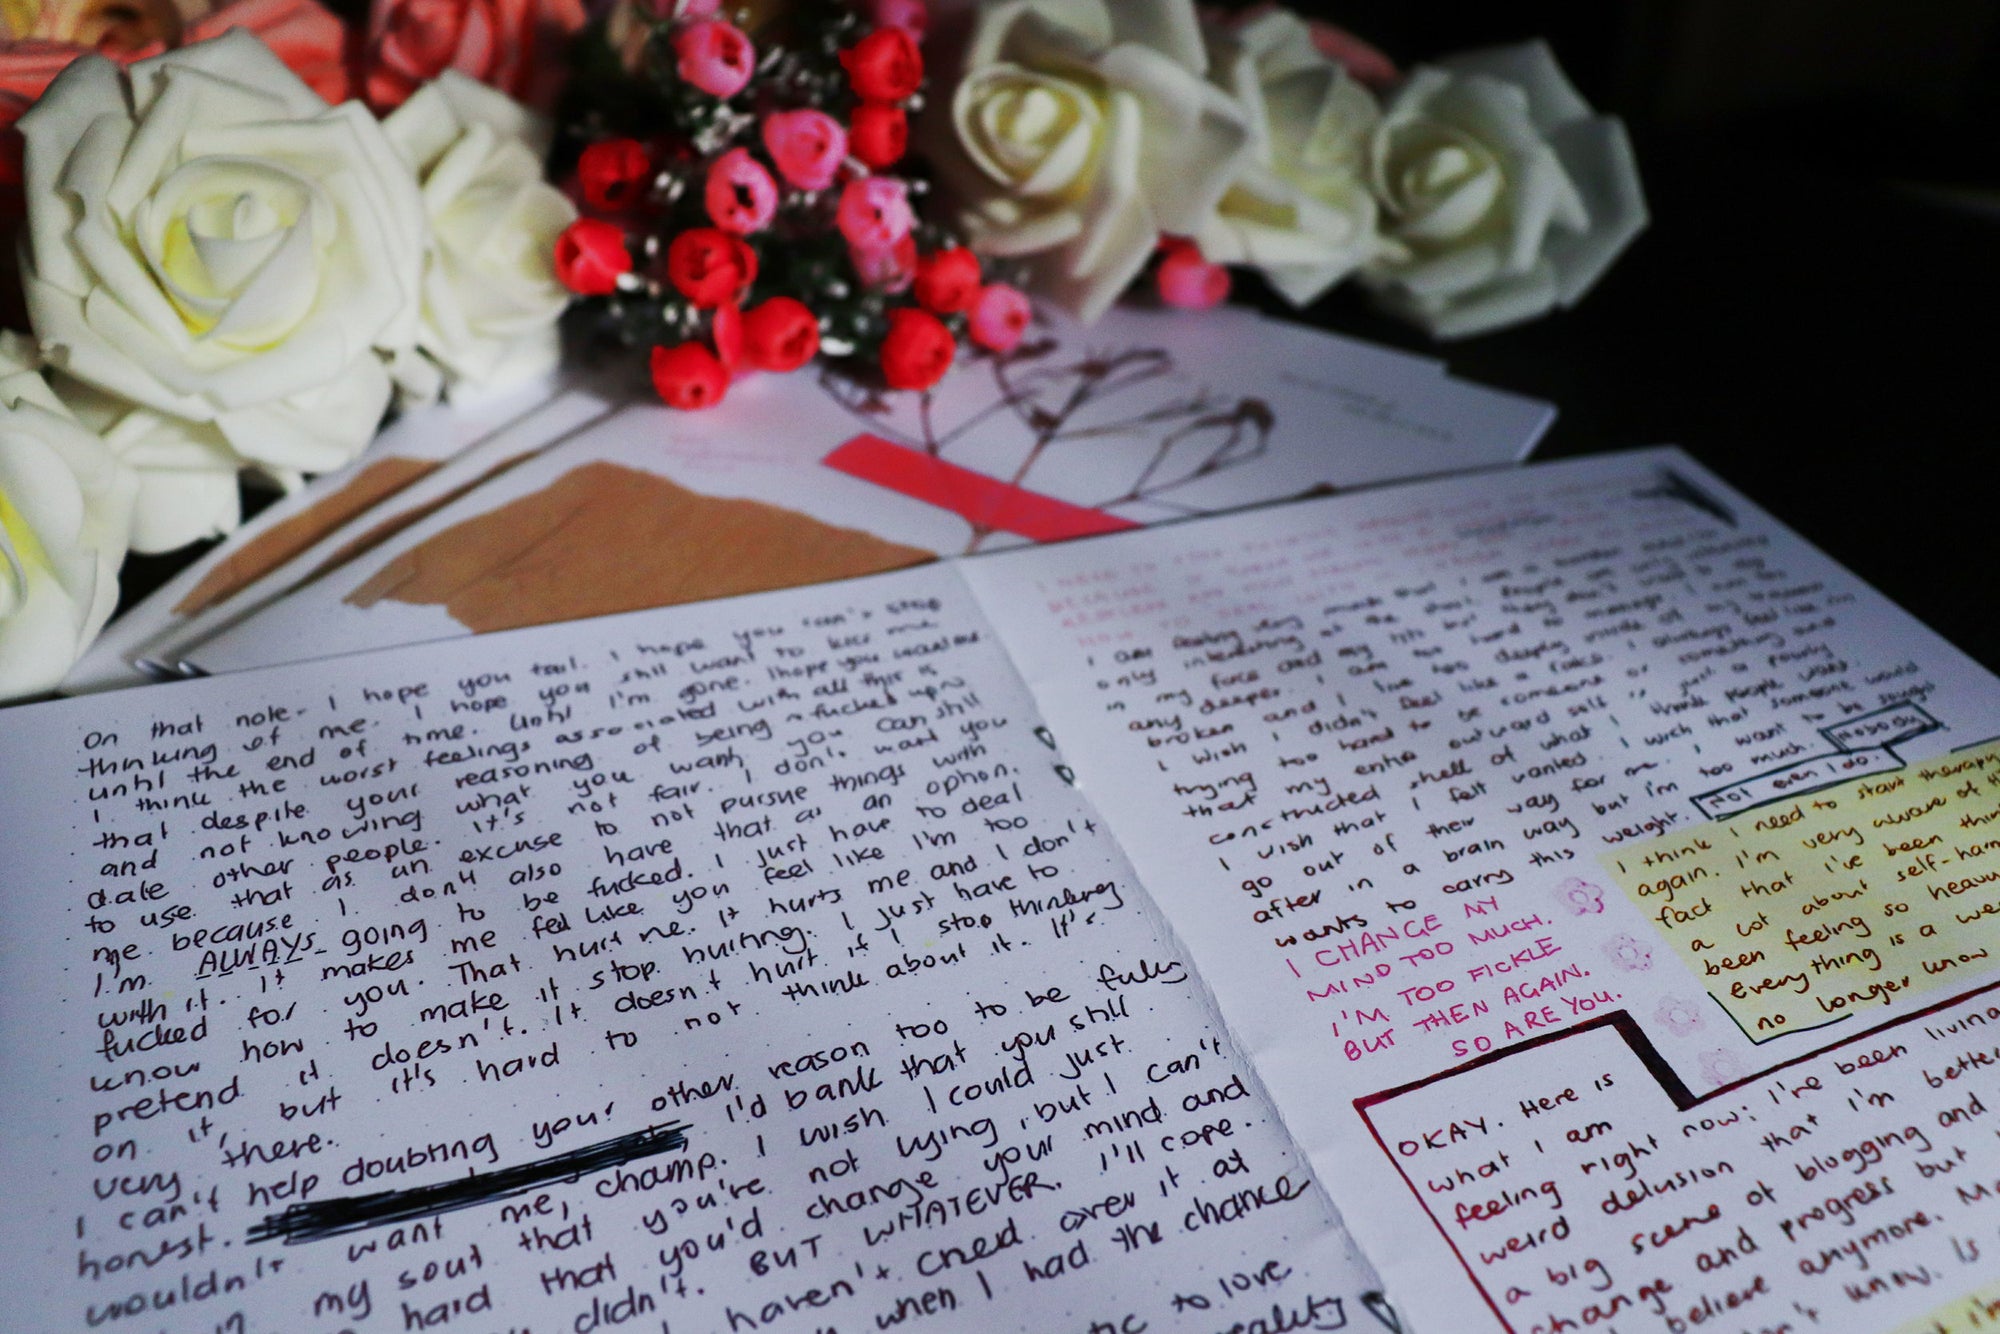 On that note - I hope you tool. I hope you can't stop
thinking of me. I hope you still want to kiss me
until the end of time. Until I'm gone. I hope you
I think the worst feelings associated with all this is
that despite your reasoning of being a fucked up
and not knowing what you want, you can still
date other people. It's not fair. I don't want you
to use that as an excuse to not pursue things with
me because I don't also have that as an option.
I'm ALWAYS going to be fucked. I just have to deal
with it. It makes me feel like you feel like I'm too
fucked for you. That hurt me. It hurts me and I don't
know how to make it stop hurting. I just have to
pretend it doesn't. It doesn't hurt if I stop thinking
on it, but it's hard to not think about it. It's
very there.
I can't help doubting your other reason too to be fully
honest. I'd bank that you still
wouldn't want me, champ. I wish I could just
my soul that you're not lying, but I can't
hard that you'd change your mind and
didn't. BUT WHATEVER. I'll cope.
haven't cried over it at
when I had the chance
to love
I am feeling very much that I am a
only interesting at the start. People are only
in my face and my tits but they don't want to
any deeper. I am too hard to manage. I am too
broken and I live too deeply inside of my
I wish I didn't feel like a fake. I always feel like I'm
trying too hard to be someone or something and
that my entire outward self is just a poorly
constructed shell of what I think people want.
I wish that I felt wanted. I wish that someone would
go out of their way for me. I want to be sought
after in a brain way but I'm too much. Nobody
wants to carry this weight. Not even I do.
I CHANGE MY
MIND TOO MUCH.
I'M TOO FICKLE
BUT THEN AGAIN.
SO ARE YOU.
I think I need to start therapy
again. I'm very aware of the
fact that I've been
a lot about self-harm
been feeling so heavy
everything is a
no longer know
OKAY. Here is
what I am
feeling right now: I've been living
weird delusion that I'm better
a big scene of blogging and
change and progress but
believe anymore.
know. Is